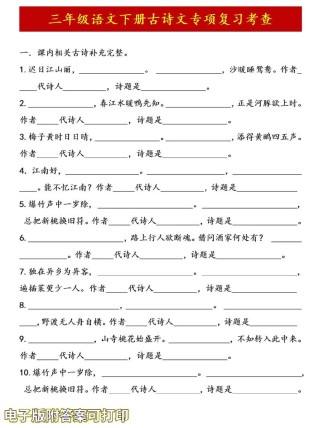 三年级语文下册古诗文专项复习考查
一．课内相关古诗补充完整。
1. 迟日江山丽，____________。____________，沙暖睡鸳鸯。作者____
____代诗人________，诗题是____________
2.____________，春江水暖鸭先知。____________，正是河豚欲上时。
作者_____代诗人________，诗题是____________
3. 梅子黄时日日晴，____________。____________，添得黄鹂四五声。
作者_____代诗人________，诗题是____________
4．江南好，____________。____________，____________
____。能不忆江南？作者_____代诗人________，诗题是____________
5. 爆竹声中一岁除，____________。____________，
总把新桃换旧符。作者_____代诗人________，诗题是____________
6. ____________，路上行人欲断魂。借问酒家何处有？____________
____。作者_____代诗人________，诗题是____________
7. 独在异乡为异客，____________。____________，
遍插茱萸少一人。作者_____代诗人________，诗题是____________
8. ____________，____________。____________
____，野渡无人舟自横。作者_____代诗人________，诗题是____________
9. ____________，山寺桃花始盛开。____________，不知转入此中来。
作者_____代诗人________，诗题是____________
10. 爆竹声中一岁除，____________。____________，
总把新桃换旧符。作者_____代诗人________，诗题是____________
电子版附答案可打印